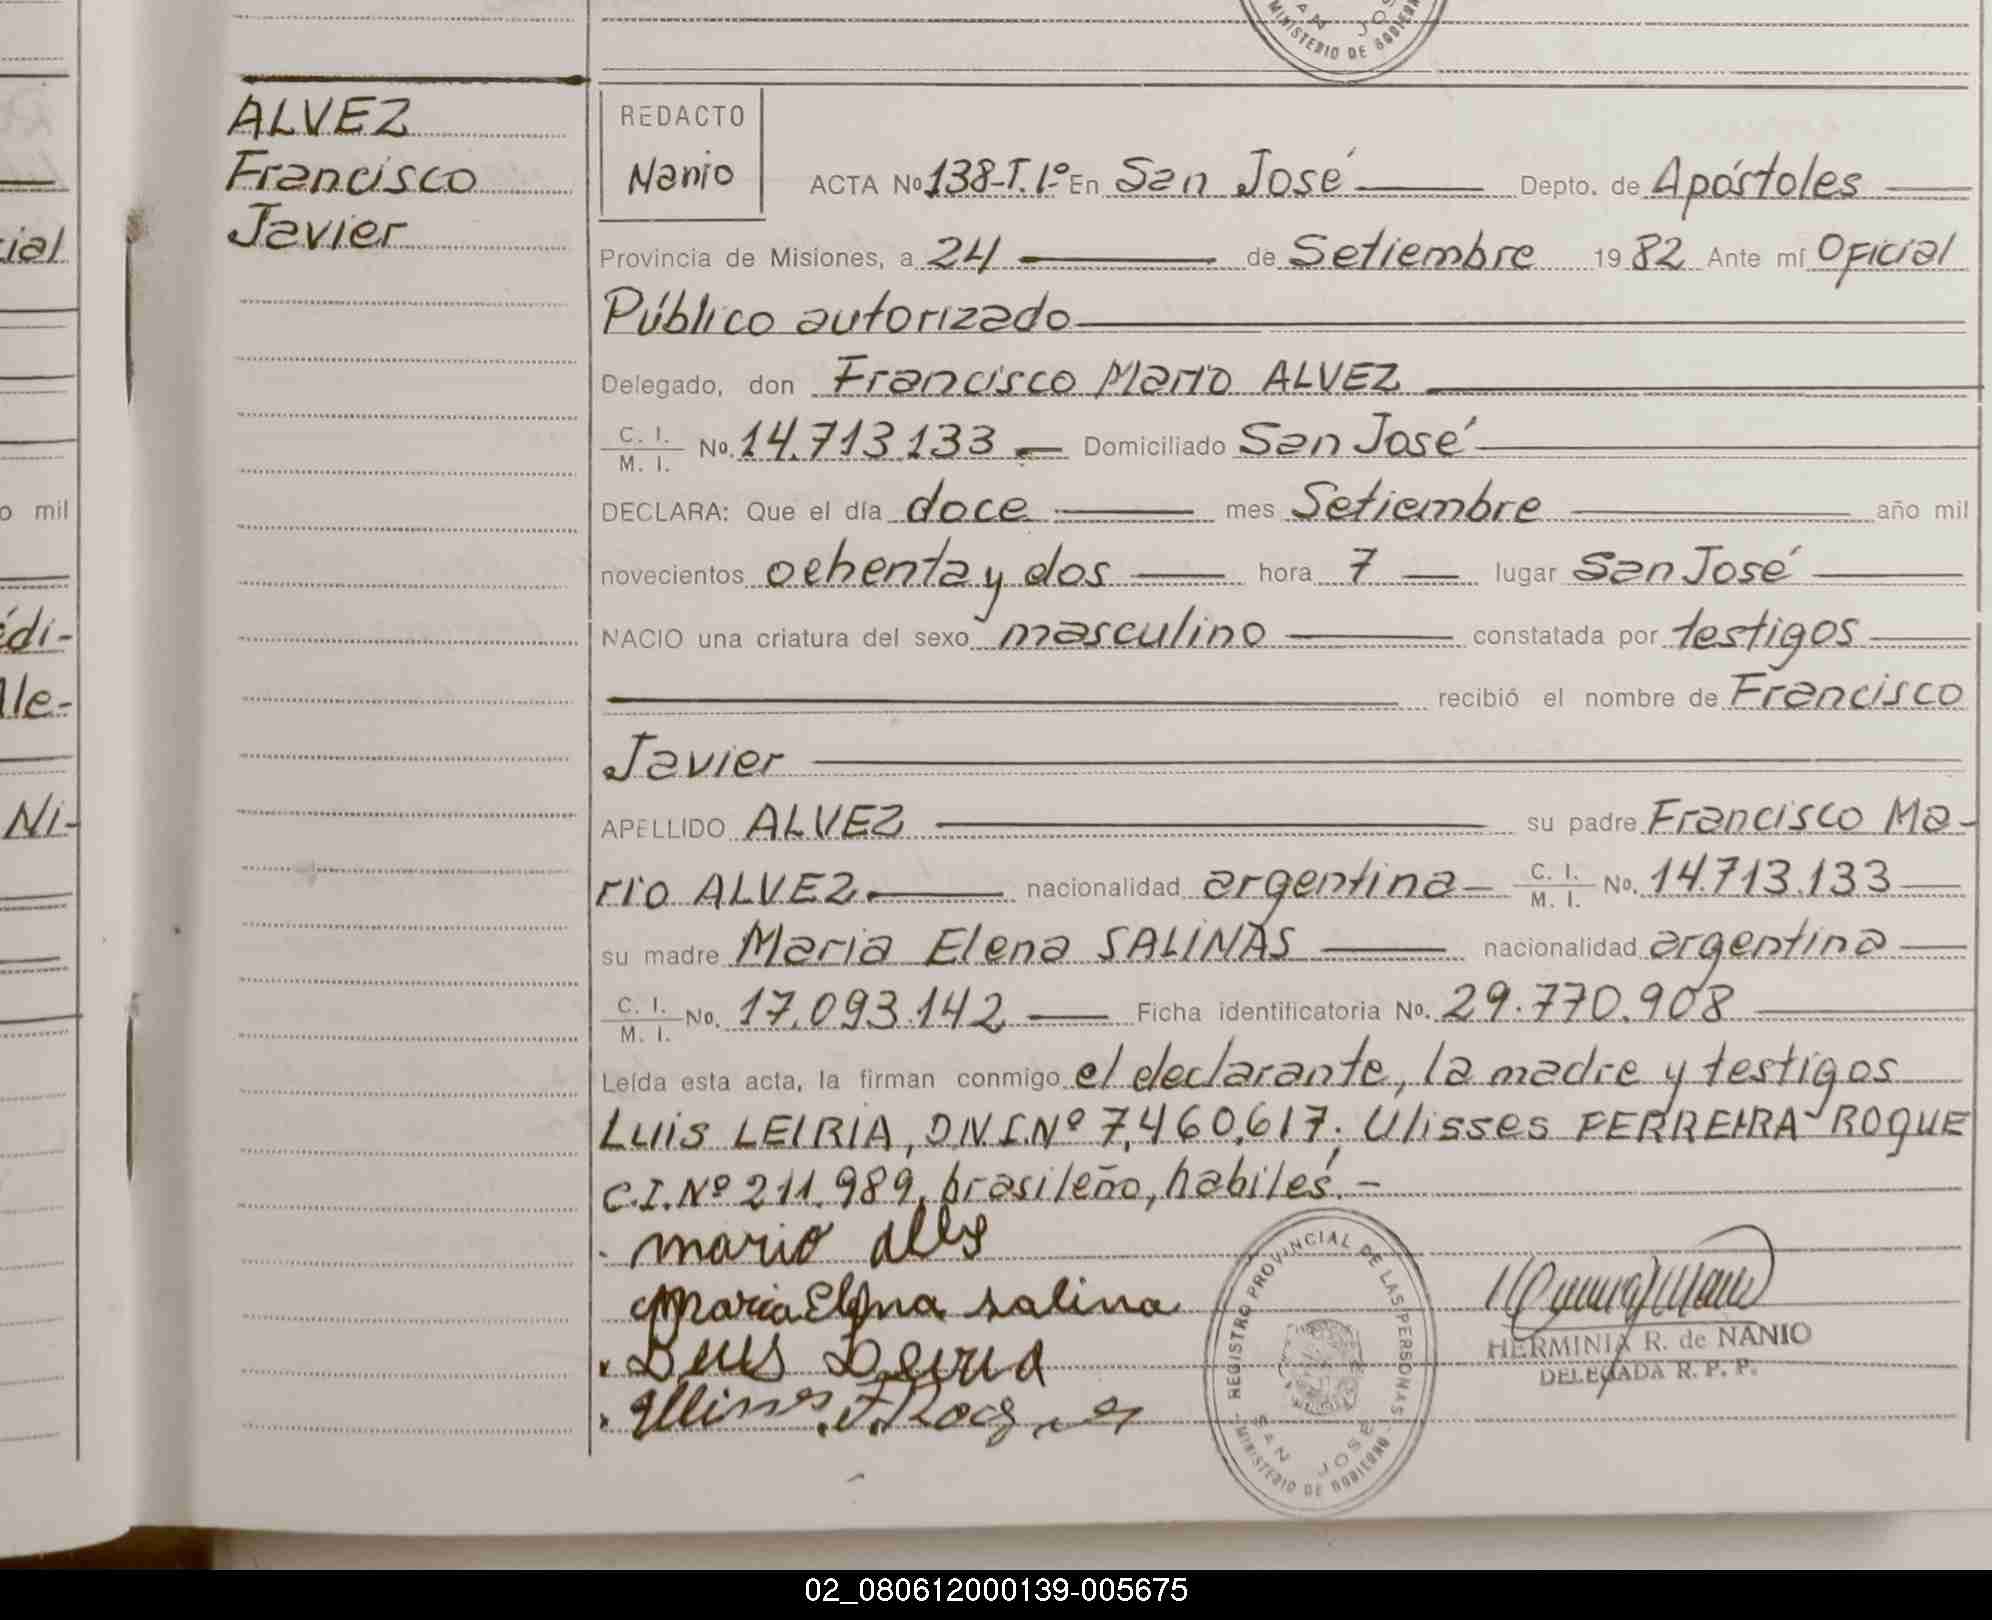 MINISTERIO DE GOBIERNO
ALVEZ
Francisco
Javier
REDACTO
Nanio
ACTA No 138-T.1º En San José Depto. de Apóstoles
Provincia de Misiones, a 24 de Setiembre 1982 Ante mí Oficial
Público autorizado
Delegado, don Francisco Mario ALVEZ
C. I. / M. I. No. 14.713.133 Domiciliado San José
DECLARA: Que el día doce mes Setiembre año mil
novecientos ochenta y dos hora 7 lugar San José
NACIO una criatura del sexo masculino constatada por testigos
recibió el nombre de Francisco
Javier
APELLIDO ALVEZ su padre Francisco Ma-
rio ALVEZ nacionalidad argentina C. I. / M. I. No. 14.713.133
su madre Maria Elena SALINAS nacionalidad argentina
C. I. / M. I. No. 17.093.142 Ficha identificatoria No. 29.770.908
Leída esta acta, la firman conmigo el declarante, la madre y testigos
Luis LEIRIA, DNI.Nº 7.460.617. Ulisses FERREIRA ROQUE
C.I.Nº 211.989, brasileño, hábiles.-
mario
Maria Elena salina
REGISTRO PROVINCIAL DE LAS PERSONAS
SAN JOSE
MINISTERIO DE GOBIERNO
HERMINIA R. de NANIO
DELEGADA R. P. P.
ial
o mil
édi-
Ale-
Ni-
02_080612000139-005675